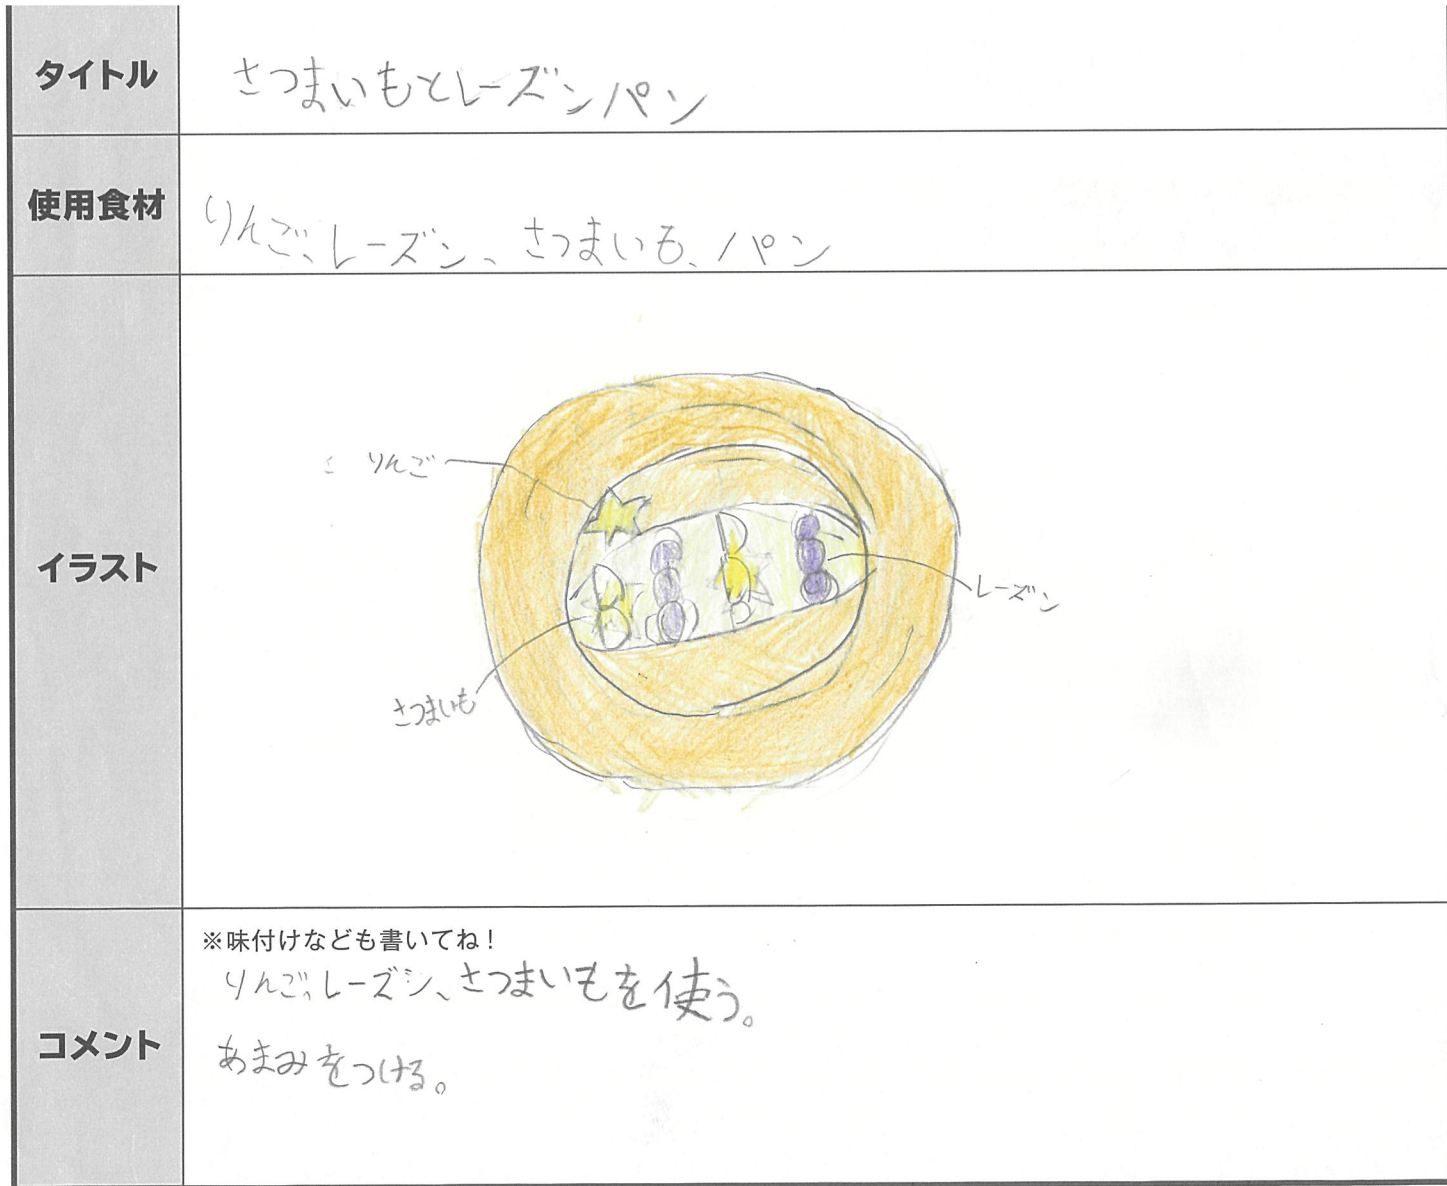 タイトル
さつまいもとレーズンパン
使用食材
りんご、レーズン、さつまいも、パン
イラスト
りんご
レーズン
さつまいも
コメント
※味付けなども書いてね!
りんご、レーズン、さつまいもを使う。
あまみをつける。